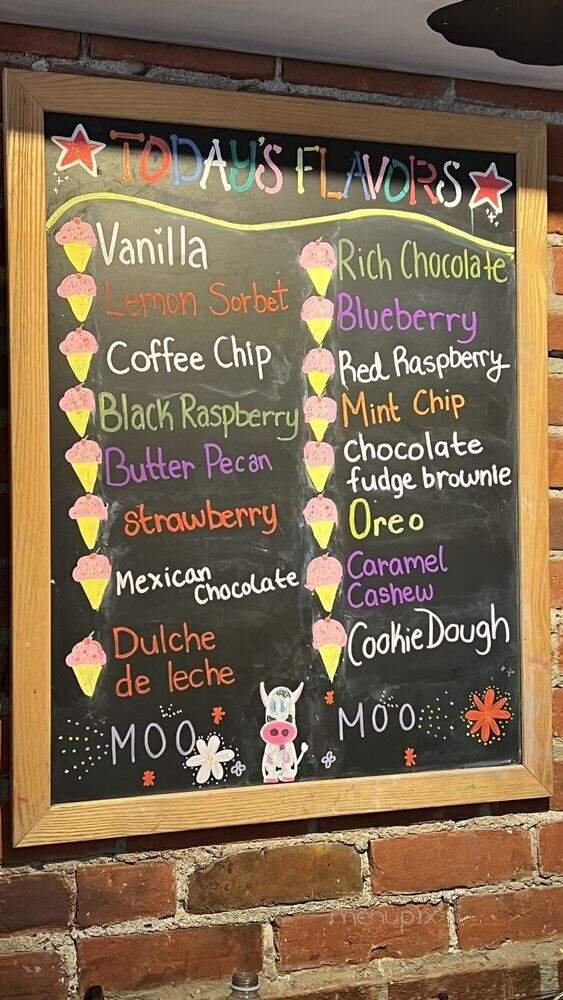 TODAY'S FLAVORS
Vanilla
Lemon Sorbet
Coffee Chip
Black Raspberry
Butter Pecan
strawberry
Mexican
Chocolate
Dulche
de leche
MOO
Rich Chocolate
Blueberry
Red Raspberry
Mint Chip
Chocolate
fudge brownie
Oreo
Caramel
Cashew
Cookie Dough
MOO
menupix